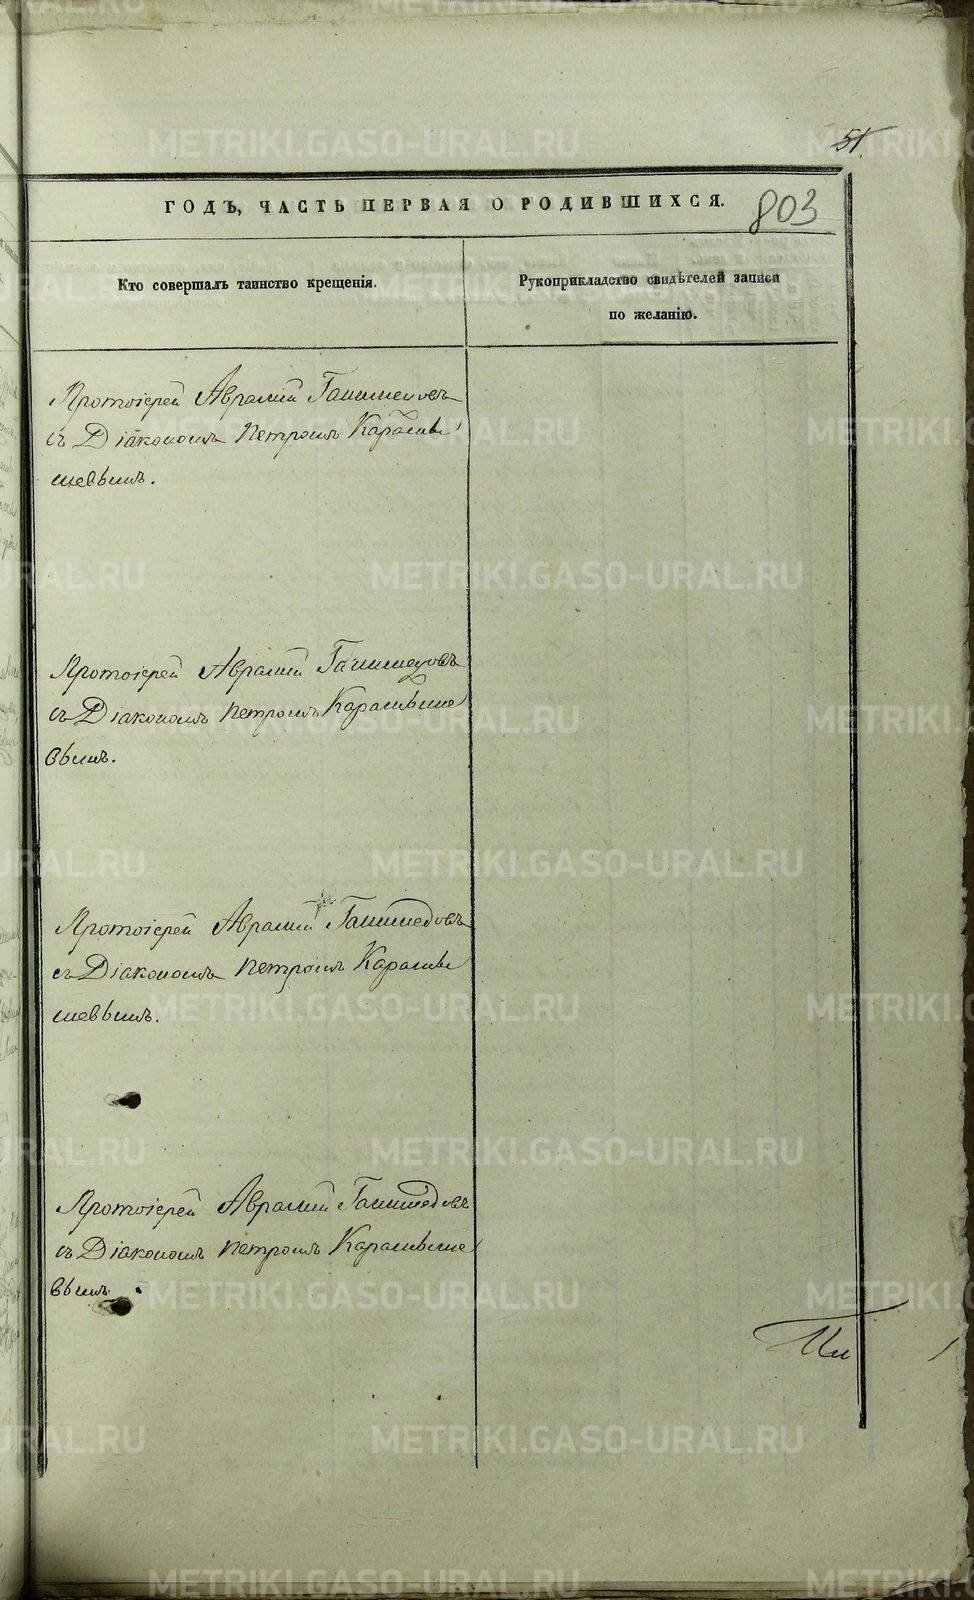 51.
ГОДЪ, ЧАСТЬ ПЕРВАЯ О РОДИВШИХСЯ.
803
Кто совершалъ таинство крещенія.
Рукоприкладство свидѣтелей записи
по желанію.
Протоіерей Авраамій
съ Діакономъ Петромъ Карамы
шевымъ.
Протоіерей Авраамій
съ Діакономъ Петромъ Карамыше
вымъ.
Протоіерей Авраамій
съ Діакономъ Петромъ Карамы
шевымъ.
Протоіерей Авраамій
съ Діакономъ Петромъ Карамыше
вымъ.
METRIKI.GASO-URAL.RU